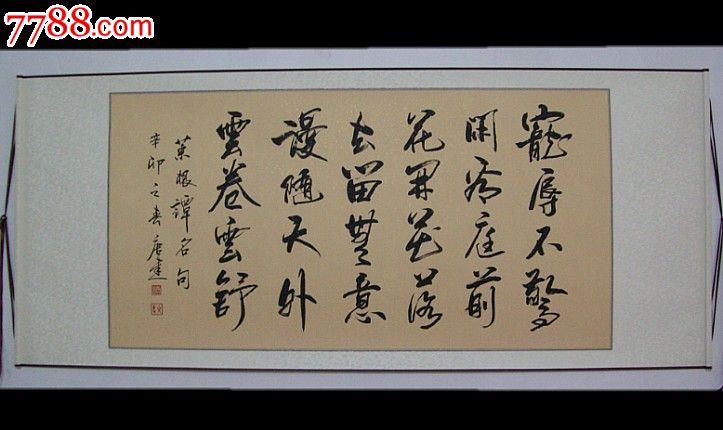 7788.com
寵辱不驚
閑看庭前
花開花落
去留無意
漫隨天外
雲卷雲舒
菜根譚名句
辛卯之春